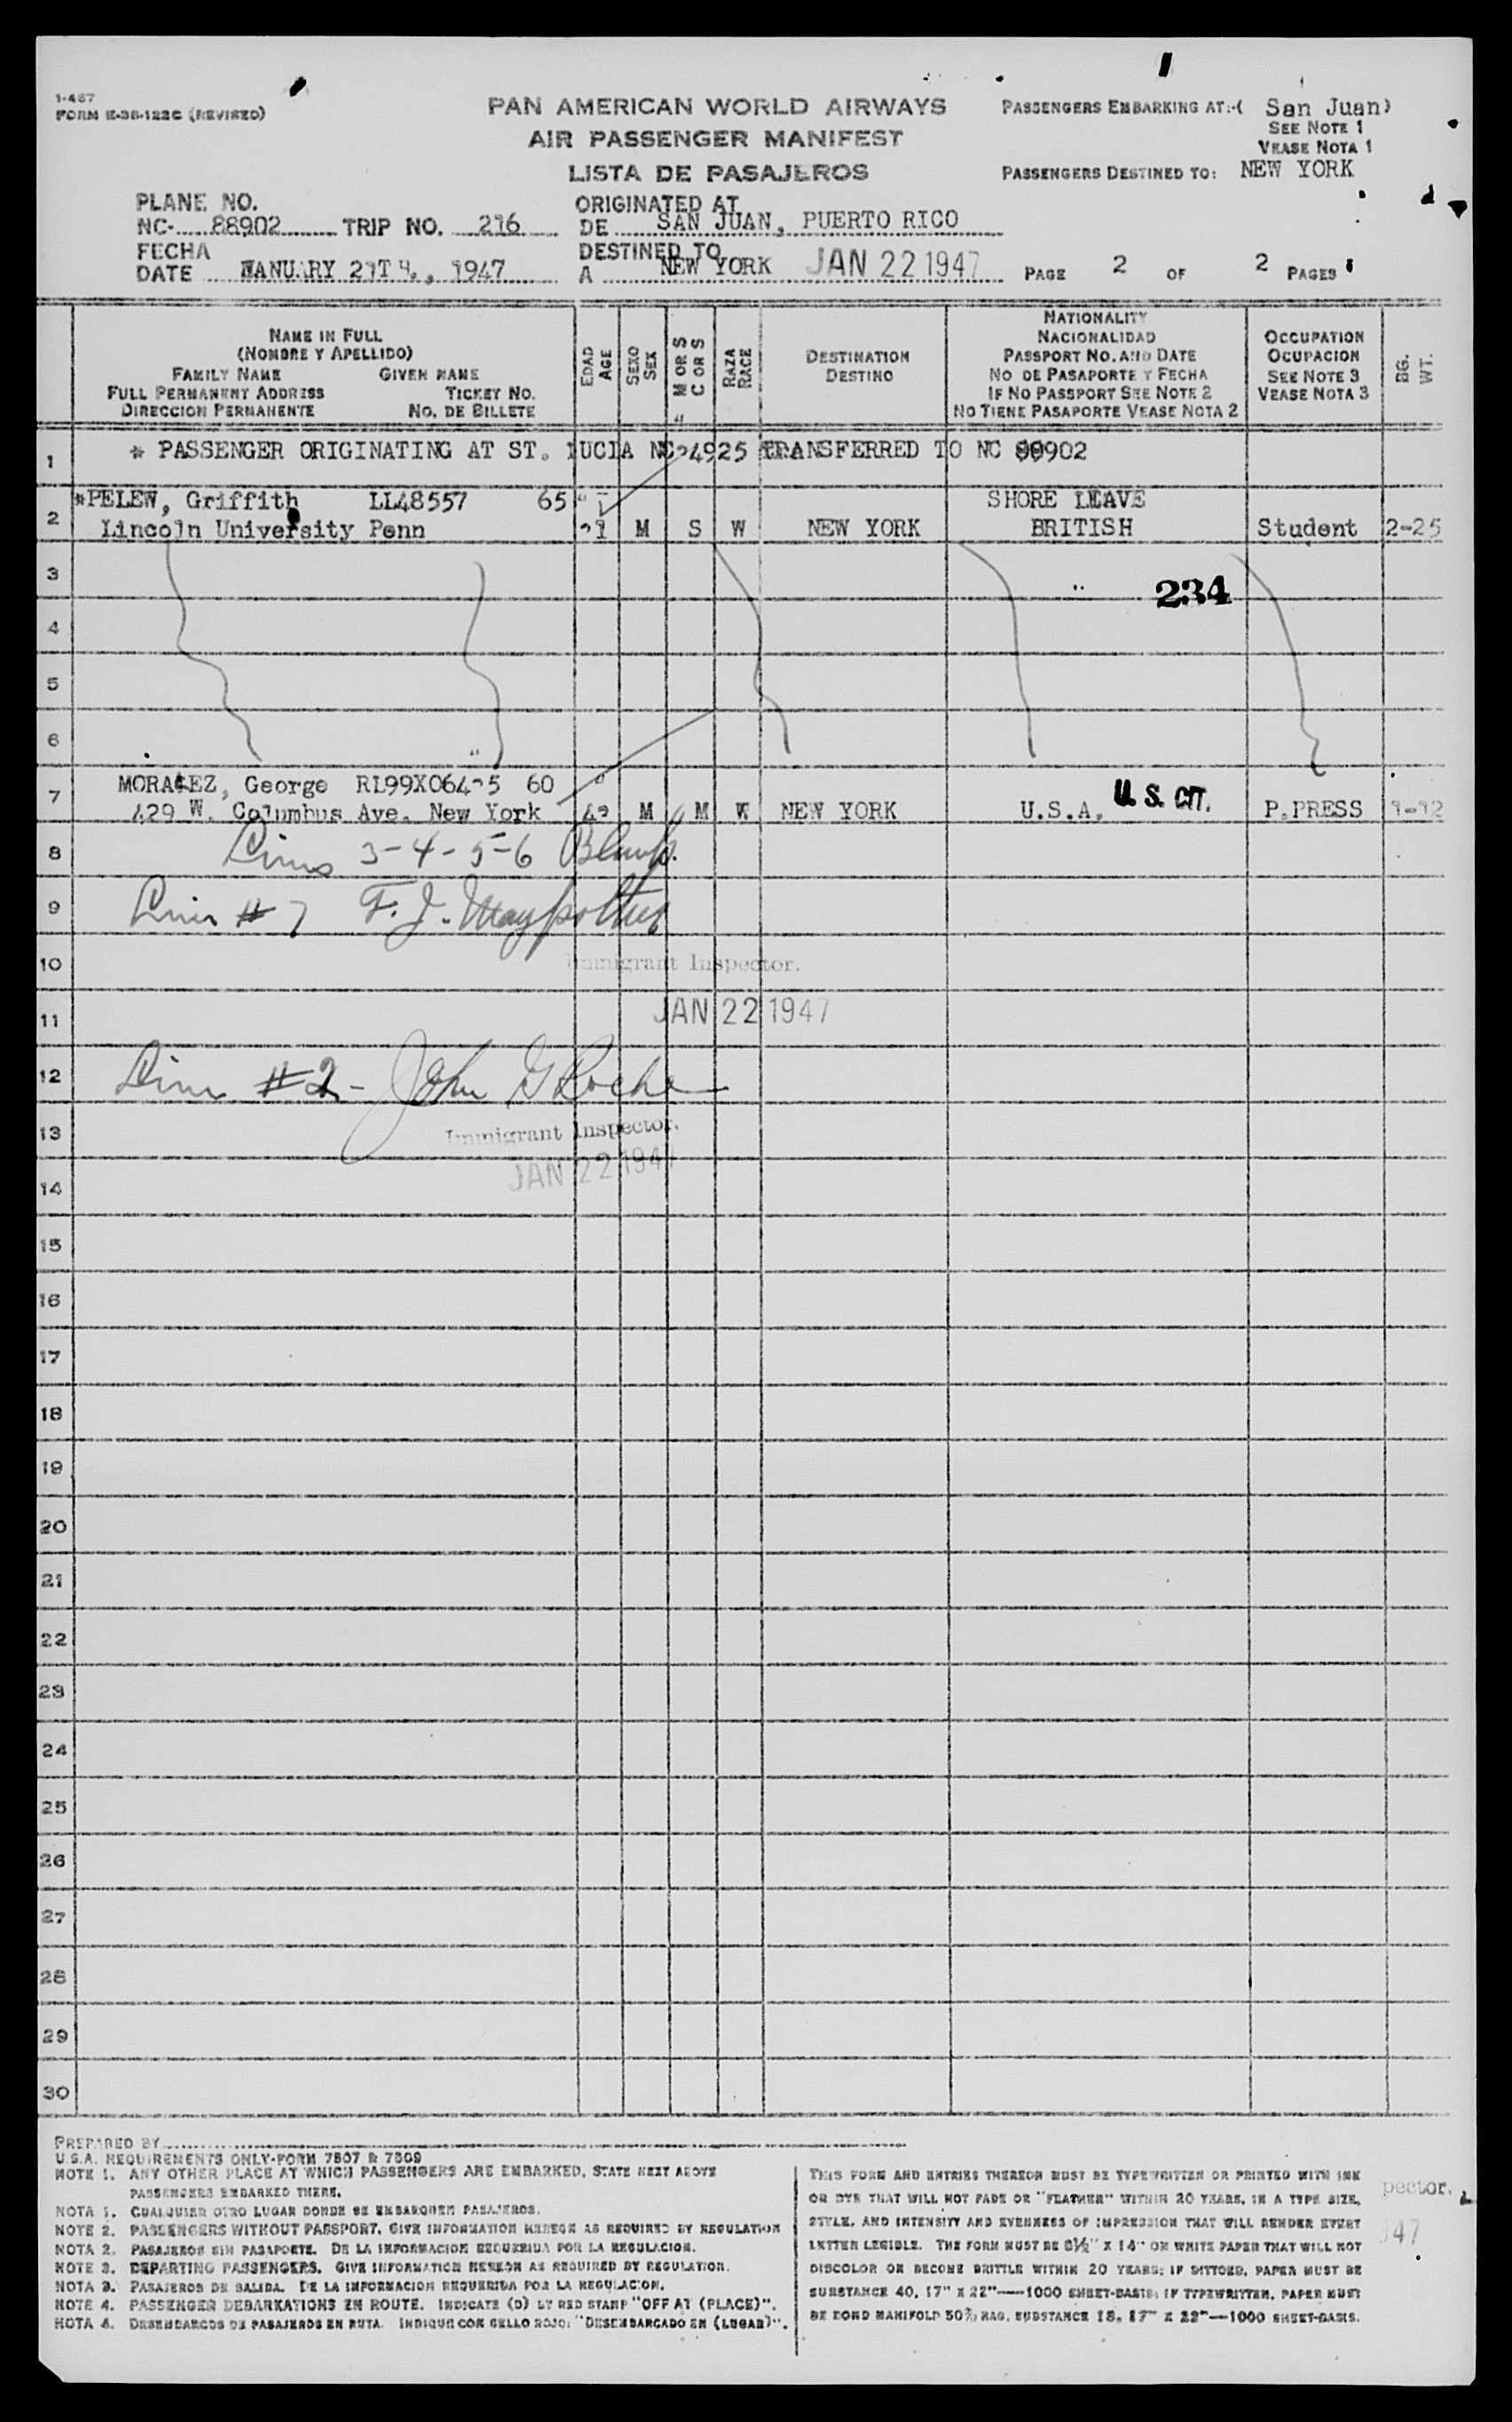 1-467
FORM E-35-122C (REVISED)
PAN AMERICAN WORLD AIRWAYS
AIR PASSENGER MANIFEST
LISTA DE PASAJEROS
PASSENGERS EMBARKING AT:-( San Juan)
SEE NOTE 1
VEASE NOTA 1
PASSENGERS DESTINED TO: NEW YORK
PLANE NO.
NC- 88902 TRIP NO. 216
ORIGINATED AT
DE SAN JUAN, PUERTO RICO
FECHA
DATE JANUARY 21T H., 1947
DESTINED TO
A NEW YORK JAN 22 1947
PAGE 2 OF 2 PAGES
NAME IN FULL
(NOMBRE Y APELLIDO)
FAMILY NAME GIVEN NAME
FULL PERMANENT ADDRESS TICKET NO.
DIRECCION PERMANENTE NO. DE BILLETE
EDAD
AGE
SEXO
SEX
M OR S
C OR S
RAZA
RACE
DESTINATION
DESTINO
NATIONALITY
NACIONALIDAD
PASSPORT NO. AND DATE
NO. DE PASAPORTE Y FECHA
IF NO PASSPORT SEE NOTE 2
NO TIENE PASAPORTE VEASE NOTA 2
OCCUPATION
OCUPACION
SEE NOTE 3
VEASE NOTA 3
BG.
WT.
1 * PASSENGER ORIGINATING AT ST. LUCIA NC 24925 TRANSFERRED TO NC 88902
*PELEW, Griffith LL48557 65 SHORE LEAVE
2 Lincoln University Penn 21 M S W NEW YORK BRITISH Student 2-25
3
234
4
5
6
MORALEZ, George 60
7 429 W. Columbus Ave. New York M M W NEW YORK U.S.A. U. S. CIT. P.PRESS 1-12
8 Lines 3-4-5-6 Blank.
9 Line # 7 F. J.
10 Immigrant Inspector.
11 JAN 22 1947
12 Line #2 - John G Roche
13 Immigrant Inspector.
JAN 22 1947
14
15
16
17
18
19
20
21
22
23
24
25
26
27
28
29
30
PREPARED BY
U.S.A. REQUIREMENTS ONLY-FORM 7507 & 7509
NOTE 1. ANY OTHER PLACE AT WHICH PASSENGERS ARE EMBARKED, STATE NEXT ABOVE
PASSENGERS EMBARKED THERE.
NOTA 1. CUALQUIER OTRO LUGAR DONDE SE EMBARQUEN PASAJEROS.
NOTE 2. PASSENGERS WITHOUT PASSPORT. GIVE INFORMATION HEREON AS REQUIRED BY REGULATION
NOTA 2. PASAJEROS SIN PASAPORTE. DE LA INFORMACION REQUERIDA POR LA REGULACION.
NOTE 3. DEPARTING PASSENGERS. GIVE INFORMATION HEREON AS REQUIRED BY REGULATION.
NOTA 3. PASAJEROS DE SALIDA. DE LA INFORMACION REQUERIDA POR LA REGULACION.
NOTE 4. PASSENGER DEBARKATIONS EN ROUTE. INDICATE (D) BY RED STAMP "OFF AT (PLACE)".
NOTA 4. DESEMBARCOS DE PASAJEROS EN RUTA. INDIQUE CON SELLO ROJO: "DESEMBARCADO EN (LUGAR)".
THIS FORM AND ENTRIES THEREON MUST BE TYPEWRITTEN OR PRINTED WITH INK
OR DYE THAT WILL NOT FADE OR "FEATHER" WITHIN 20 YEARS, IN A TYPE SIZE,
STYLE, AND INTENSITY AND EVENNESS OF IMPRESSION THAT WILL RENDER EVERY
LETTER LEGIBLE. THE FORM MUST BE 8½" X 14" ON WHITE PAPER THAT WILL NOT
DISCOLOR OR BECOME BRITTLE WITHIN 20 YEARS; IF DITTOED, PAPER MUST BE
SUBSTANCE 40, 17" X 22"—1000 SHEET-BASIS; IF TYPEWRITTEN, PAPER MUST
BE BOND MANIFOLD 50% RAG, SUBSTANCE 18, 17" X 22"—1000 SHEET-BASIS.
pector.
47